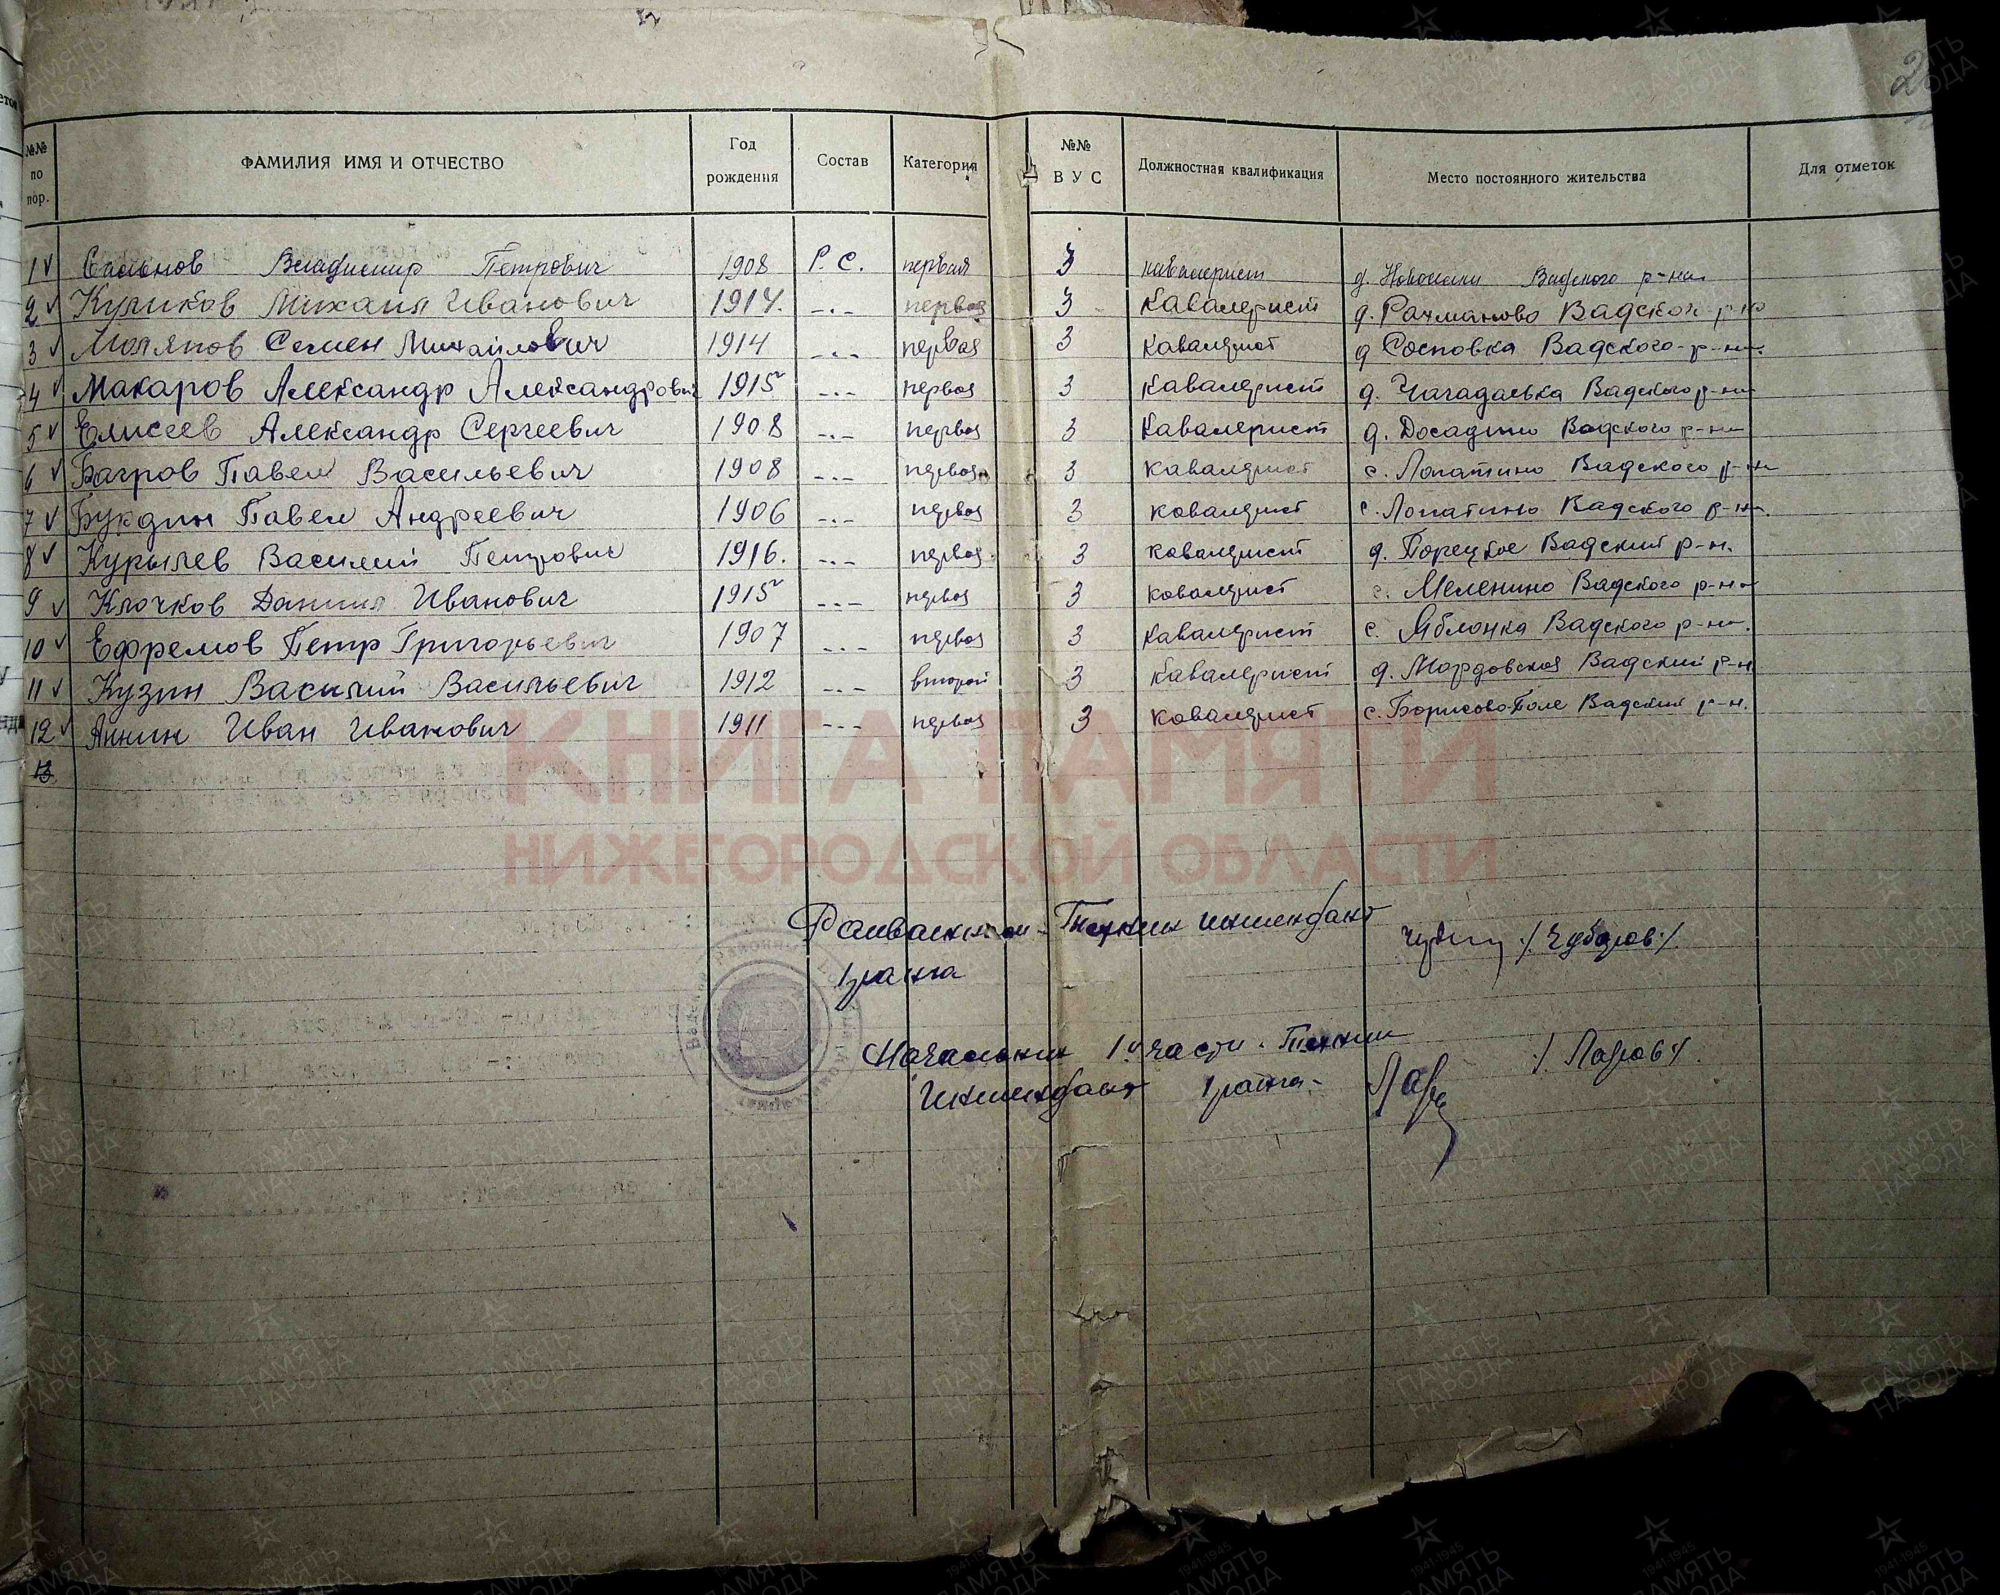 2
№№ по пор. ФАМИЛИЯ ИМЯ И ОТЧЕСТВО Год рождения Состав Категория №№ ВУС Должностная квалификация Место постоянного жительства Для отметок
1 Сальнов Владимир Петрович 1908 Р.С. первая 3 кавалерист д. Новомихи Вадского р-на
2 Куликов Михаил Иванович 1914. -.- первая 3 Кавалерист д. Рахманово Вадского р-на
3 Семен Михайлович 1914 -.- первая 3 Кавалерист д Сосновка Вадского-р-на.
4 Макаров Александр Александрович 1915 -.- первая 3 Кавалерист д. Вадского р-на
5 Елисеев Александр Сергеевич 1908 -.- первая 3 Кавалерист д. Досадино Вадского р-на
6 Багров Павел Васильевич 1908 -.- первая 3 Кавалерист с. Лопатино Вадского р-на
7 Павел Андреевич 1906 -.- первая 3 кавалерист с. Лопатино Вадского р-на.
8 Курылев Василий Петрович 1916. -.- первая 3 кавалерист д. Порецкое Вадский р-н.
9 Клочков Даниил Иванович 1915 -.- первая 3 кавалерист с. Меленино Вадского р-на
10 Ефремов Петр Григорьевич 1907 -.- первая 3 Кавалерист с. Яблонка Вадского р-на.
11 Кузин Василий Васильевич 1912 -.- второй 3 Кавалерист д. Мордовская Вадский р-н
12 Аннин Иван Иванович 1911 -.- первая 3 кавалерист с. Борисово-Поле Вадский р-н.
13
КНИГА ПАМЯТИ
НИЖЕГОРОДСКОЙ ОБЛАСТИ
Райвоенком - Техник интендант /Чубаров/
1 ранга
Начальник 1й части - Техник
Интендант 1 ранга - /Лавров/.